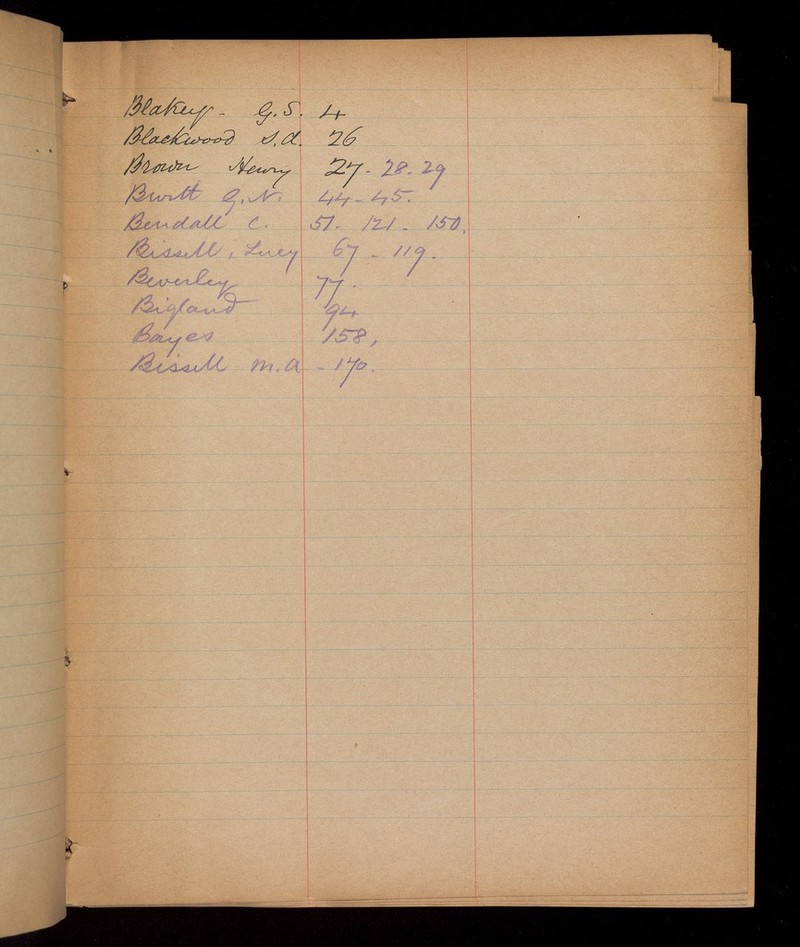 Blakey - G.S. 4
Blackwood S.d. 26
Brown Henry 27 - 28. 29
G.N. 44 - 45.
Bendall C. 51 - 121 - 150,
Bissell, Lucy 67 - 119.
Beverley 77.
Bigland 94
Bayes 158,
Bissell M.A - 170.